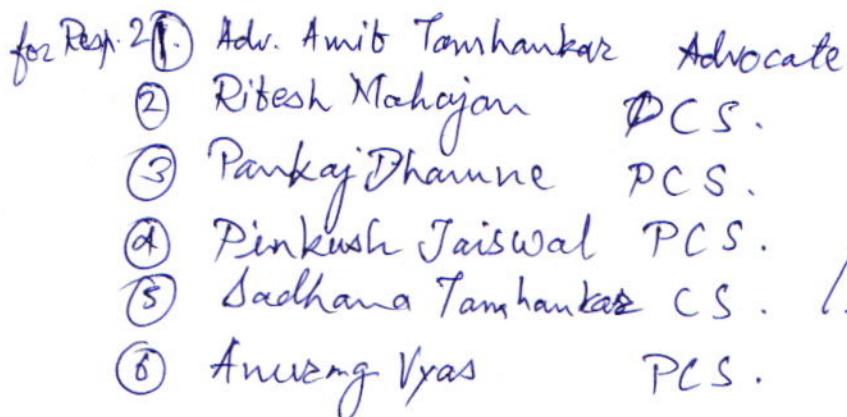 for Resp. 2 1. Adv. Amit Tamhankar Advocate
2 Ritesh Mahajan PCS.
3 Pankaj Dhamne PCS.
4 Pinkush Jaiswal PCS.
5 Sadhana Tamhankar CS.
6 Anurag Vyas PCS.